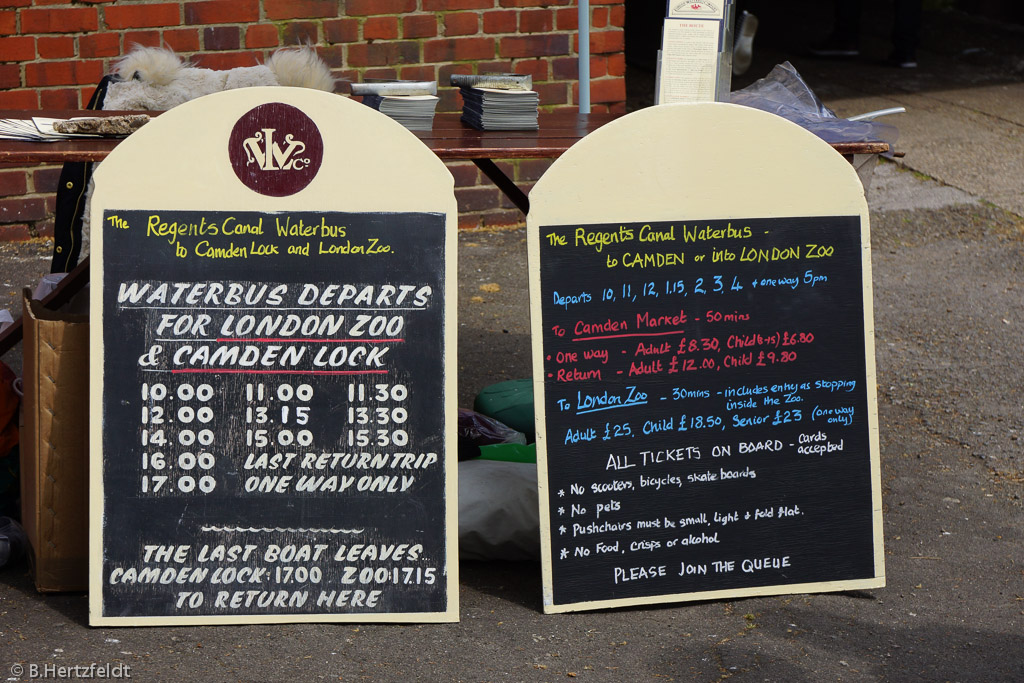 LWCo
The Regents Canal Waterbus
to Camden Lock and London Zoo.
WATERBUS DEPARTS
FOR LONDON ZOO
& CAMDEN LOCK
10.00 11.00 11.30
12.00 13.15 13.30
14.00 15.00 15.30
16.00 LAST RETURN TRIP
17.00 ONE WAY ONLY
THE LAST BOAT LEAVES
CAMDEN LOCK: 17.00 ZOO: 17.15
TO RETURN HERE
The Regents Canal Waterbus -
to CAMDEN or into LONDON ZOO
Departs 10, 11, 12, 1.15, 2, 3, 4 + one way 5pm
To Camden Market - 50 mins
• One way - Adult £8.30, Child(5-15) £6.80
• Return - Adult £12.00, Child £9.80
To London Zoo - 30mins - includes entry as stopping
inside the Zoo.
Adult £25, Child £18.50, Senior £23 (one way
only)
ALL TICKETS ON BOARD - Cards
accepted
* No scooters, bicycles, skate boards
* No pets
* Pushchairs must be small, light & fold flat.
* No Food, crisps or alcohol
PLEASE JOIN THE QUEUE
© B.Hertzfeldt